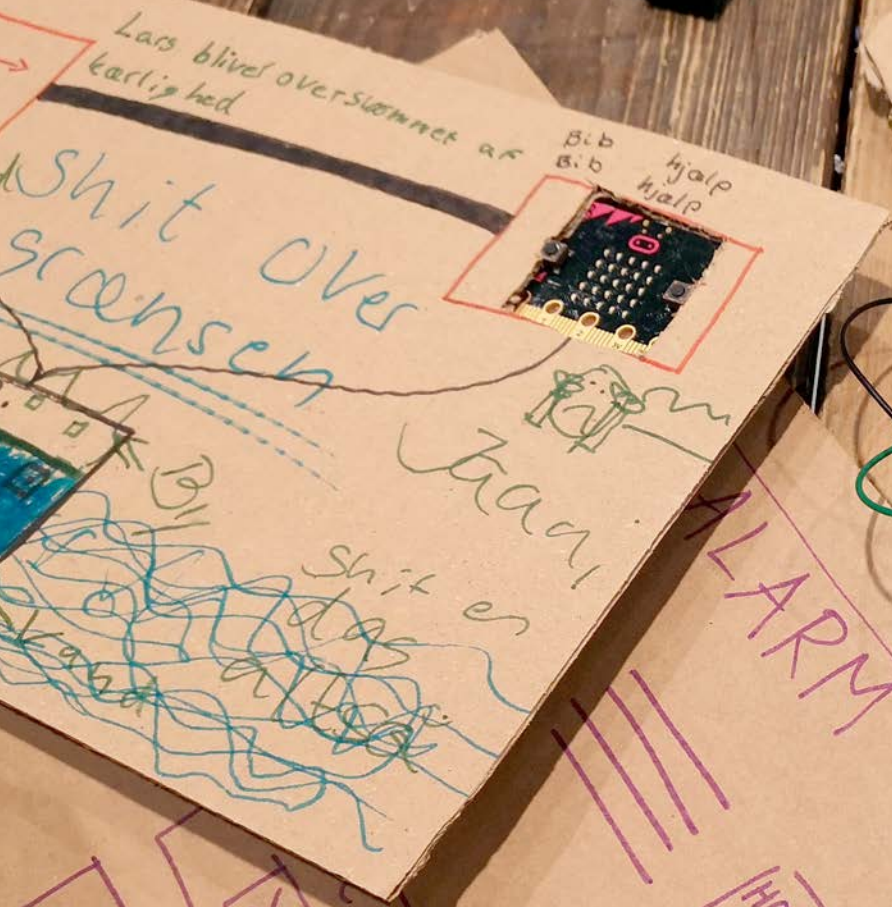 Lars bliver oversvømmet af
kærlighed
Bib
Bib
hjælp
hjælp
Shit over
grænsen
Shit en
dag
altså
ALARM